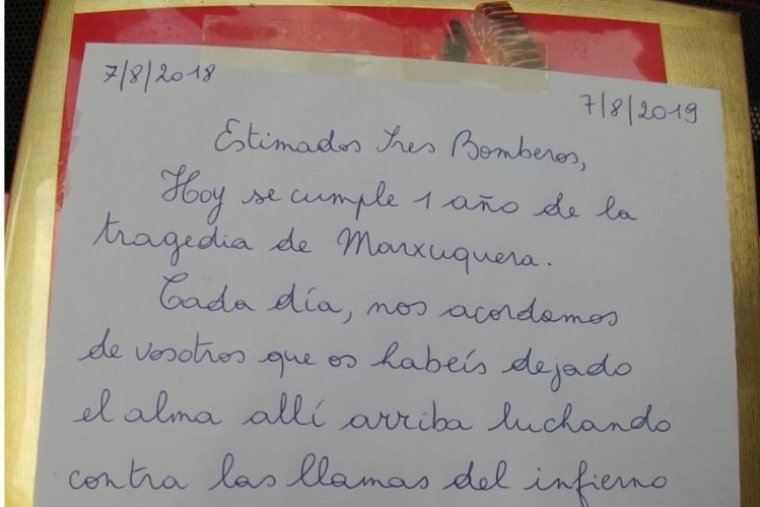 7/8/2018
7/8/2019
Estimados Tres Bomberos,
Hoy se cumple 1 año de la
tragedia de Marxuquera.
Cada día, nos acordamos
de vosotros que os habeís dejado
el alma allí arriba luchando
contra las llamas del infierno